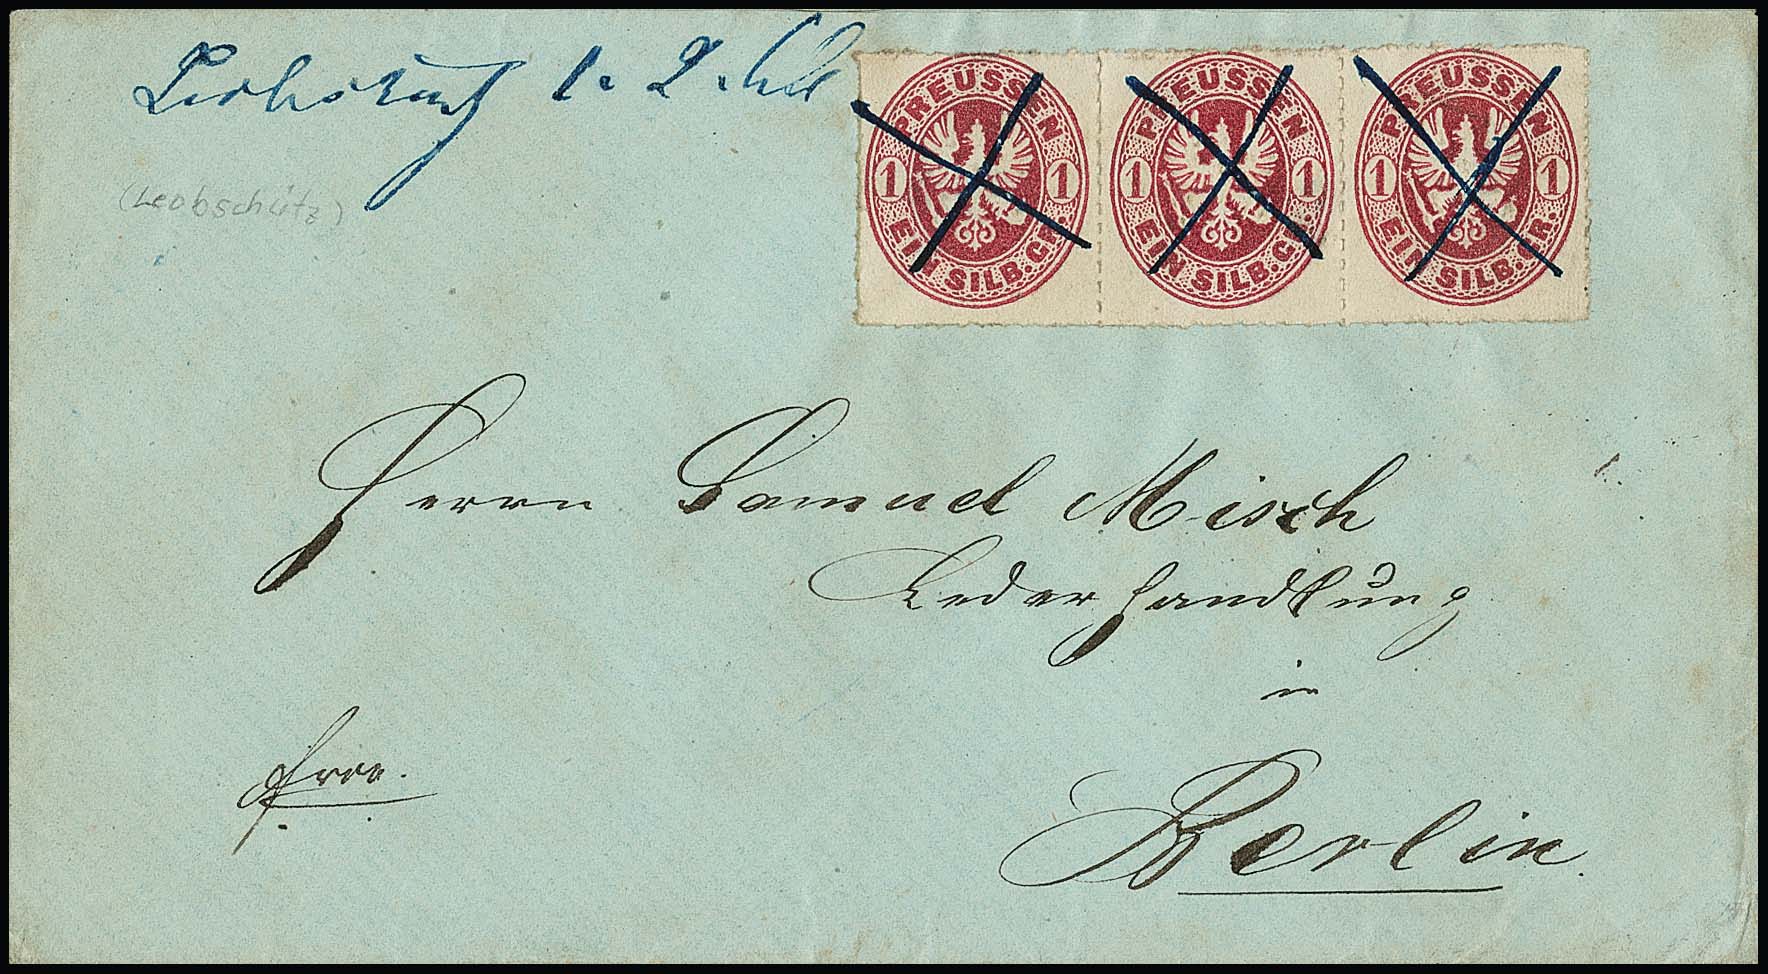 Leobschütz
(Leobschütz)
PREUSSEN 1 1 EIN SILB. GR.
PREUSSEN 1 1 EIN SILB. GR.
PREUSSEN 1 1 EIN SILB. GR.
Herrn Samuel Misch
Lederhandlung
in
free.
Berlin.